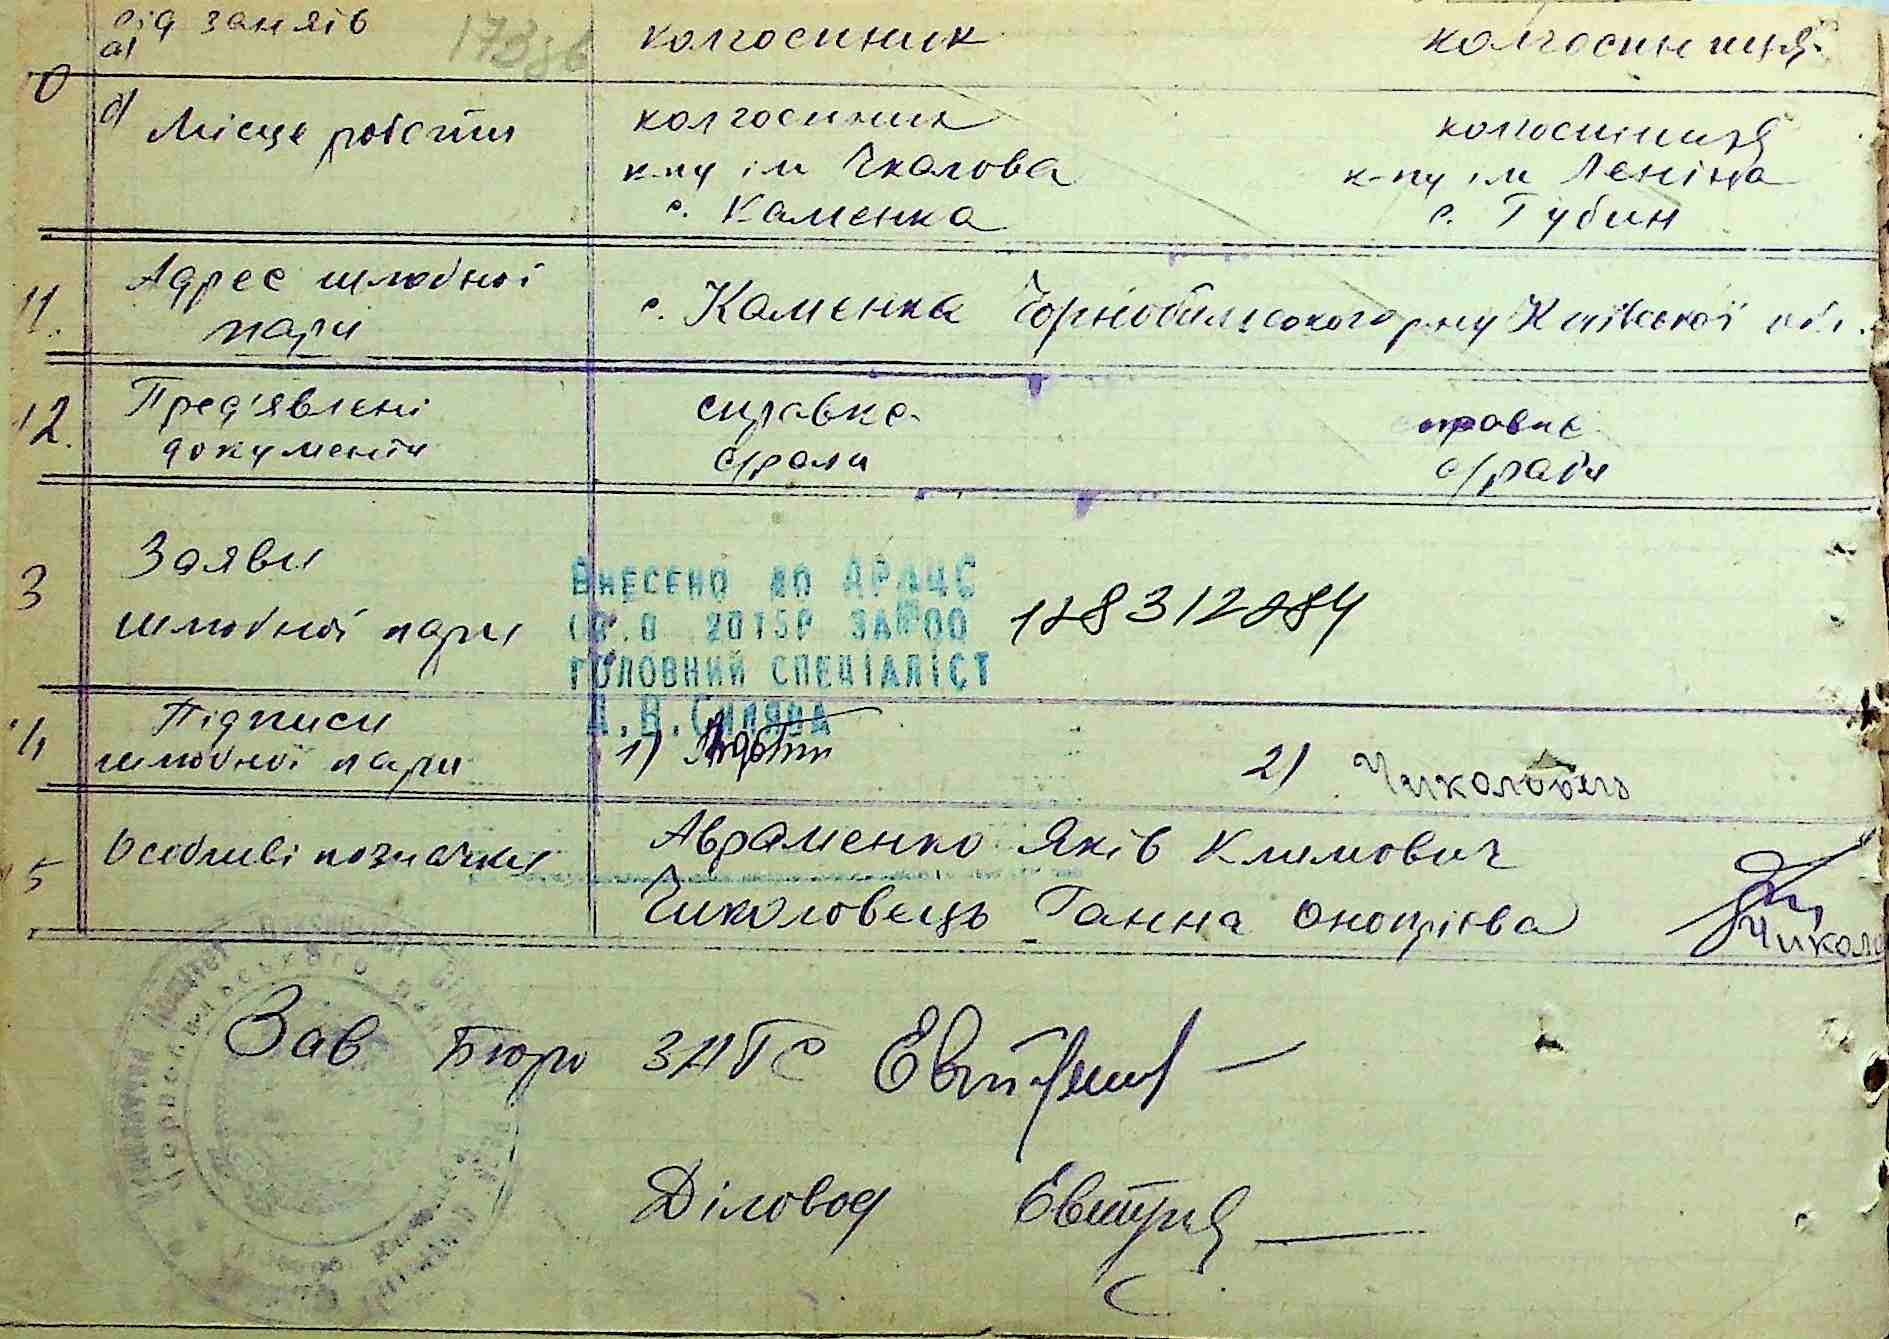 від занять колгоспник колгоспниця
а)
б) Місце роботи колгоспник колгоспниця
к-пу ім Чкалова к-пу ім Леніна
с. Каменка с. Губин
11. Адрес шлюбної
пари с. Каменка Чорнобильського р-ну Київської обл.
12. Пред'явлені справка справка
документи с/ради с/ради
3 Заяви
шлюбної пари
ВНЕСЕНО ДО ДРАЦС
2015Р ЗА № 00 128312884
ГОЛОВНИЙ СПЕЦІАЛІСТ
4 Підписи
шлюбної пари 1) 2) Чиколовець
5 Особливі позначки Авраменко Яків Климович
Чиколовець Ганна Онопріївна
Чикол
Зав Бюро ЗАГС
Діловод